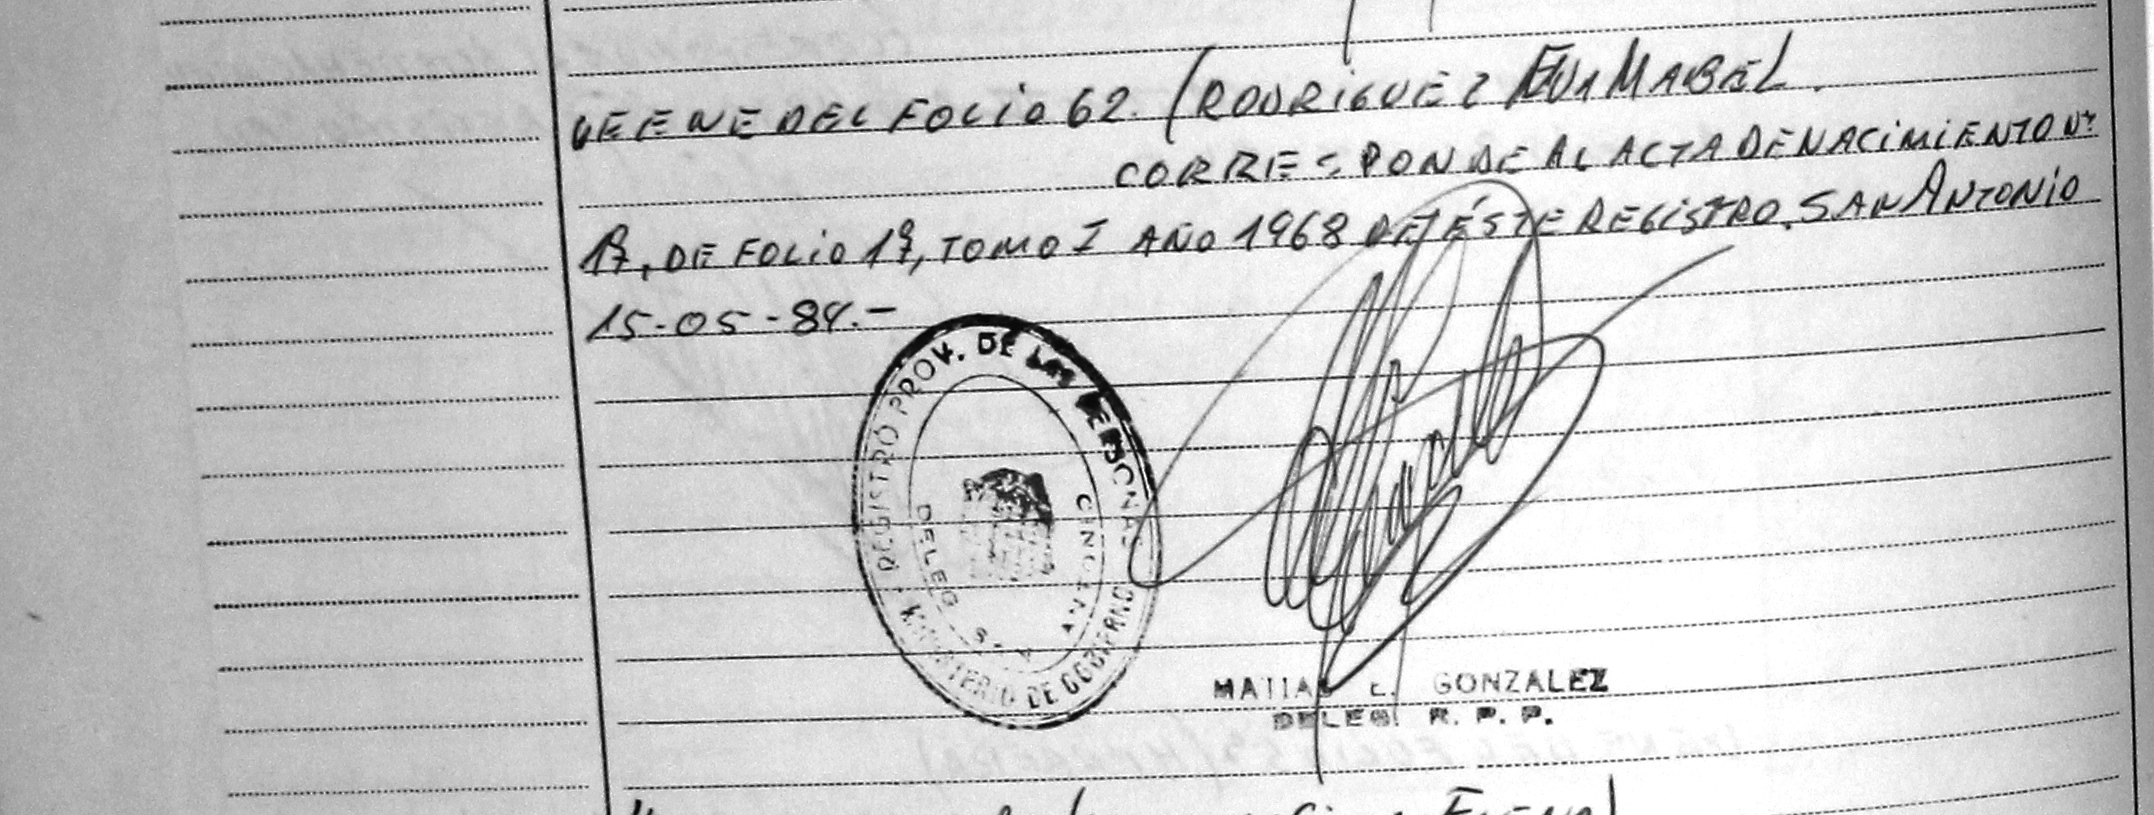 VEENE DEL FOLIO 62. (RODRIGUEZ EVA MABEL.
CORRESPONDE AL ACTA DE NACIMIENTO Nº
17, DE FOLIO 17, TOMO I AÑO 1968 DE ÉSTE REGISTRO. SAN ANTONIO
15-05-84.-
REGISTRO PROV. DE LAS PERSONAS
MINISTERIO DE GOBIERNO
DELEG.
MATIAS E. GONZALEZ
DELEG. R. P. P.